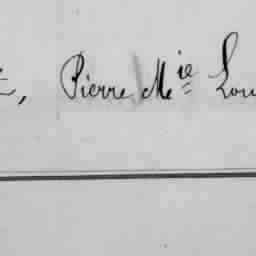 , Pierre Mie Lou